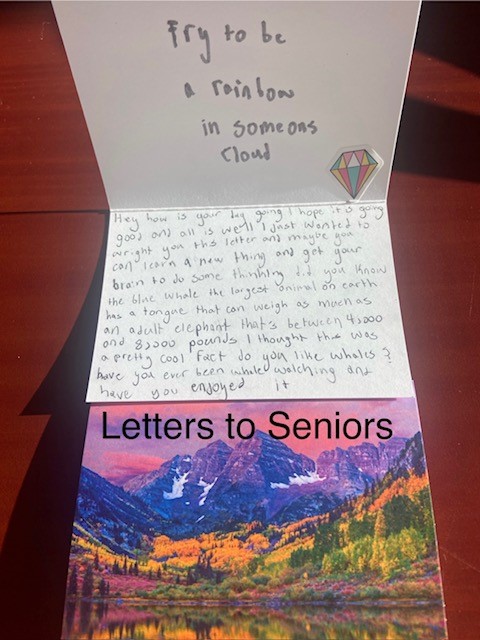 Try to be
a rainbow
in someons
cloud
Hey how is your day going I hope it is going
good and all is well I just wanted to
wright you this letter and maybe you
can learn a new thing and get your
brain to do some thinking did you know
the blue whale the largest animal on earth
has a tongue that can weigh as much as
an adult elephant that's between 4,000
and 8,000 pounds I thought this was
a pretty cool fact do you like whales?
have you ever been whale watching and
have you enjoyed it
Letters to Seniors